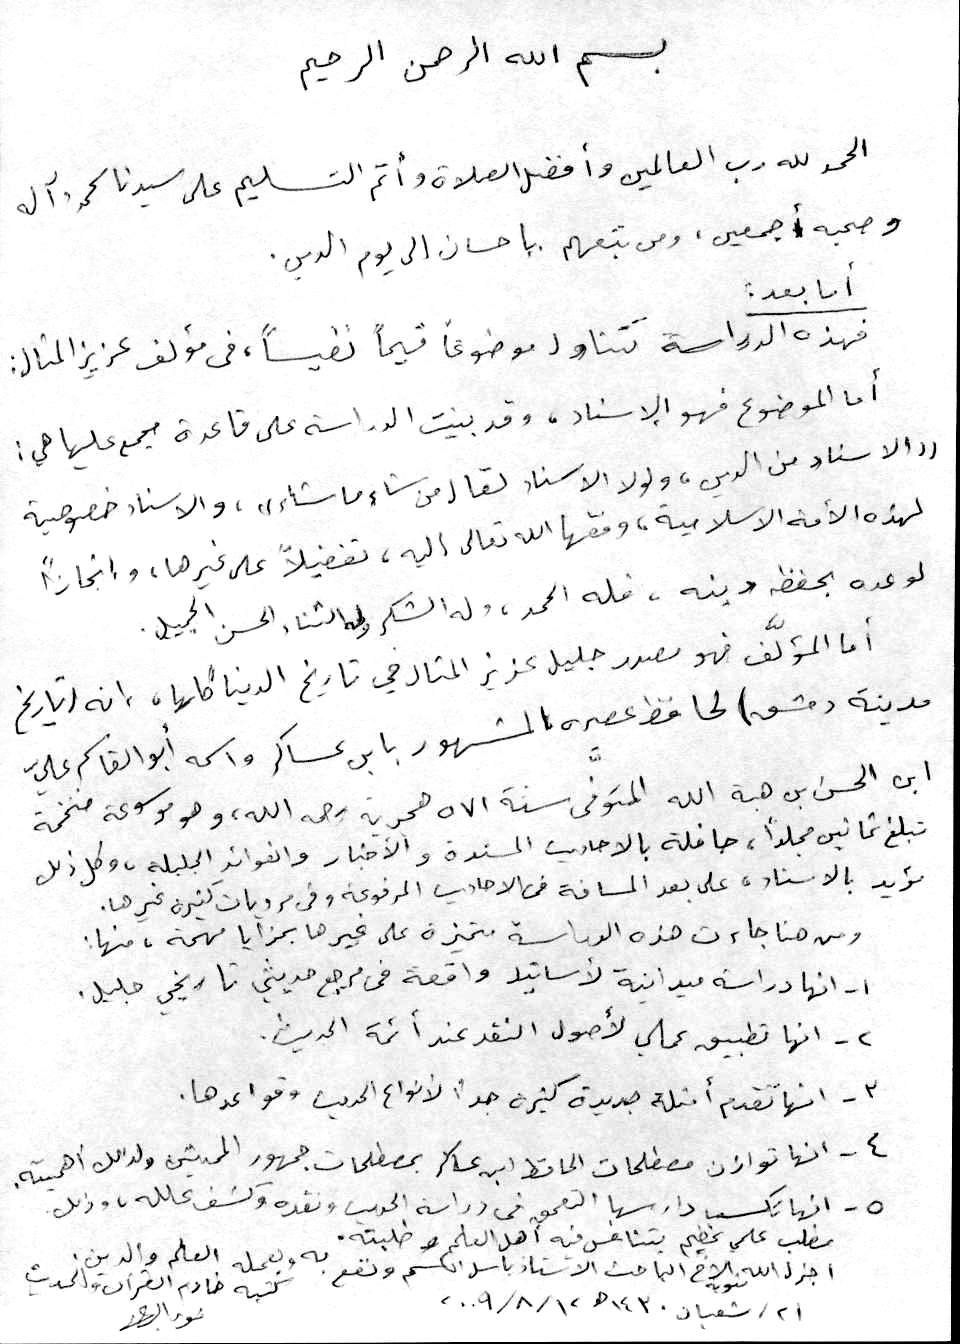 بسم الله الرحمن الرحيم
الحمد لله رب العالمين وأفضل الصلاة وأتم التسليم على سيدنا محمد وآله
وصحبه أجمعين، ومن تبعهم بإحسان إلى يوم الدين.
أما بعد:
فهذه الدراسة تتناول موضوعاً قيماً نفيساً، في مؤلف عزيز المثال:
أما الموضوع فهو الإسناد، وقد بنيت الدراسة على قاعدة مجمع عليها هي:
((الاسناد من الدين، ولولا الاسناد لقال من شاء ما شاء))، والاسناد خصوصية
لهذه الأمة الاسلامية، وفقها الله تعالى إليه، تفضيلاً على غيرها، وإنجازاً
لوعده بحفظ دينه، فله الحمد، وله الشكر وله الثناء الحسن الجميل.
أما المؤلَّف فهو مصدر جليل عزيز المثال في تاريخ الدنيا كلها، انه (تاريخ
مدينة دمشق) لحافظ عصره المشهور بابن عساكر واسمه أبو القاسم علي
ابن الحسن بن هبة الله المتوفَّى سنة ٥٧١ هجرية رحمه الله، وهو موسوعة ضخمة
تبلغ ثمانين مجلداً، حافلة بالاحاديث المسندة والأخبار والفوائد الجليلة، وكل ذلك
مؤيد بالاسناد، على بعد المسافة في الاحاديث المرفوعة وفي مرويات كثيرة غيرها.
ومن هنا جاءت هذه الدراسة متميزة على غيرها بمزايا مهمة، منها:
١- انها دراسة ميدانية لأسانيد واقعة في مرجع حديثي تاريخي جليل.
٢- انها تطبيق عملي لأصول النقد عند أئمة الحديث.
٣- انها تقدم أمثلة جديدة كثيرة جداً لأنواع الحديث وقواعدها.
٤- انها توازن مصطلحات الحافظ ابن عساكر بمصطلحات جمهور المحدثين ولذلك أهميته.
٥- انها تكسب دارسها التعمق في دراسة الحديث ونقده وكشف علله، وذلك
مطلب علمي عظيم يتنافس فيه أهل العلم وطلبته.
اجزل الله مثوبة الأخ الباحث الاستاذ باسل القاسم ونفع به وبعمله العلم والدين.
كتبه خادم القرآن والحديث
٢١/ شعبان ١٤٣٠هـ ١٢/٨/٢٠٠٩
نور الدين